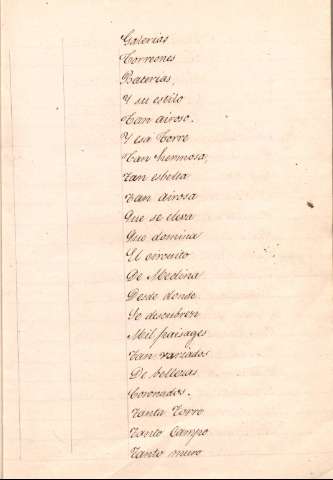 Galerias
Torreones
Baterias,
Y su estilo
Tan airoso.
Y esa Torre
Tan hermosa,
Tan esbelta
Tan airosa
Que se eleva
Que domina
El circuito
De Medina
Desde donde
Se descubren
Mil paisages
Tan variados
De bellezas
Coronados.
Tanta Torre
Tanto Campo
Tanto muro